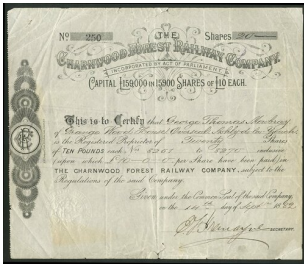 No 250 Shares 20
THE
CHARNWOOD FOREST RAILWAY COMPANY.
INCORPORATED BY ACT OF PARLIAMENT
CAPITAL £159,000 IN 15,900 SHARES OF £10 EACH.
This is to Certify that George Thomas
of Grange Wood House Overseal Ashby de la Zouch
is the Registered Proprietor of Twenty Shares
of TEN POUNDS each No to inclusive
upon which £10-0-0 per Share have been paid in
THE CHARNWOOD FOREST RAILWAY COMPANY, subject to the
Regulations of the said Company.
Given under the Common Seal of the said Company
in the day of